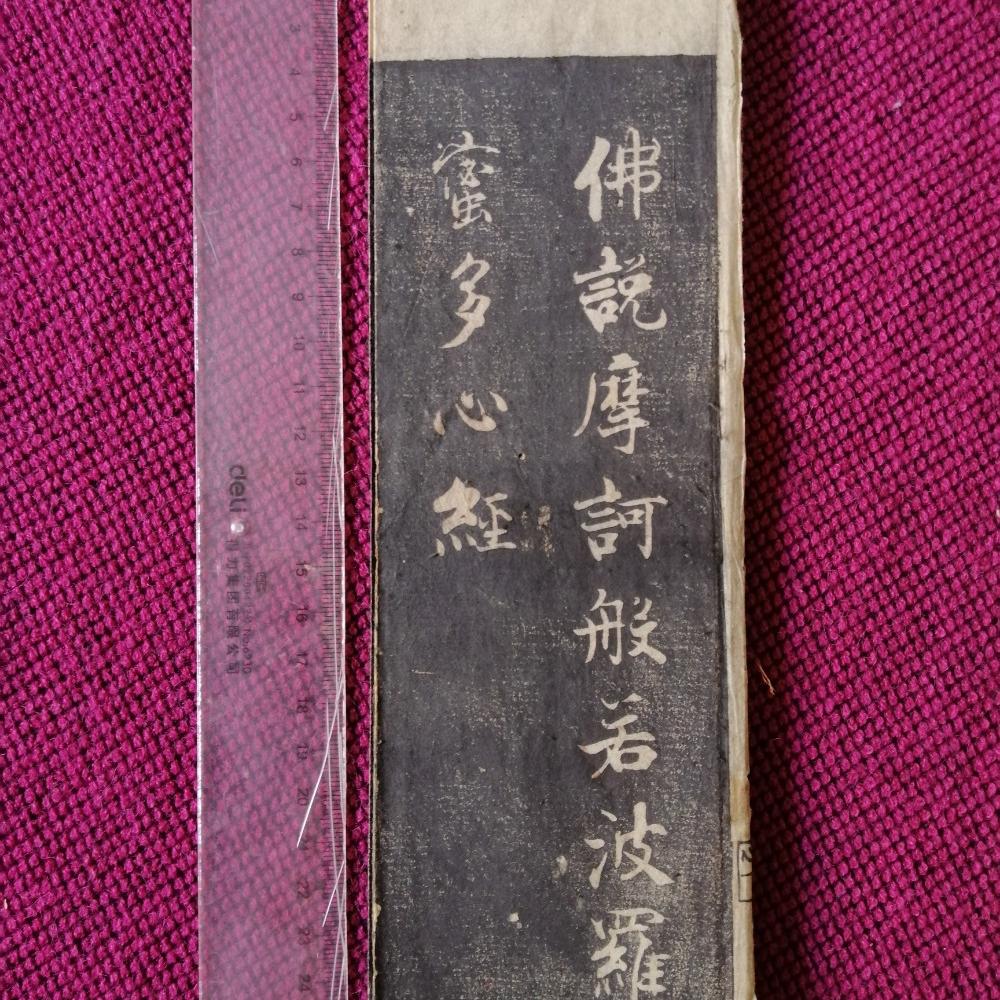 佛說摩訶般若波羅
蜜多心經
3
4
5
6
7
8
9
10
11
12
13
14
15
16
17
18
19
20
22
23
24
deli